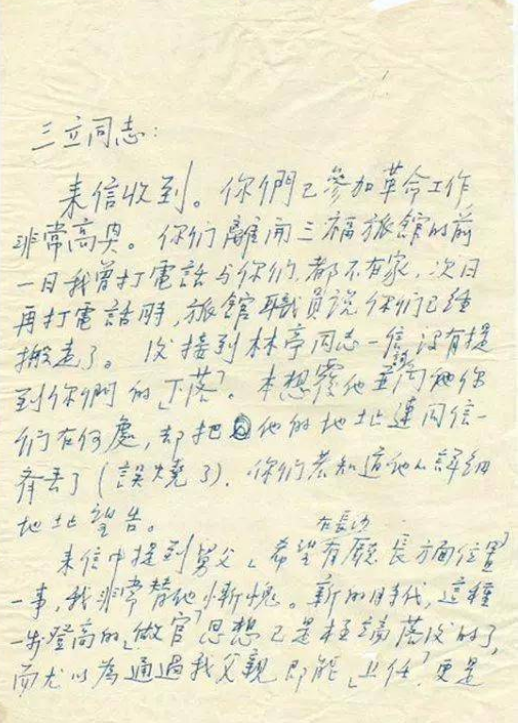 三立同志：
来信收到。你們已參加革命工作
非常高興。你们離開三福旅館的前
一日我曾打電話与你们，都不在家，次日
再打電話時，旅館職員说你们已經
搬走了。後接到林亭同志一信，沒有提
到你們的「下落」。本想覆他並詢他你
们在何處，却把他的地址連同信一
齊丟了（誤燒了）。你们若知道他的詳細
地址望告。
在長沙
来信中提到舅父「希望有厰長方面位置」
一事，我非常替他慚愧。新的時代，這種
一步登高的「做官」思想已是極端落後的了，
而尤以為通過我父親即能「上任」，更是